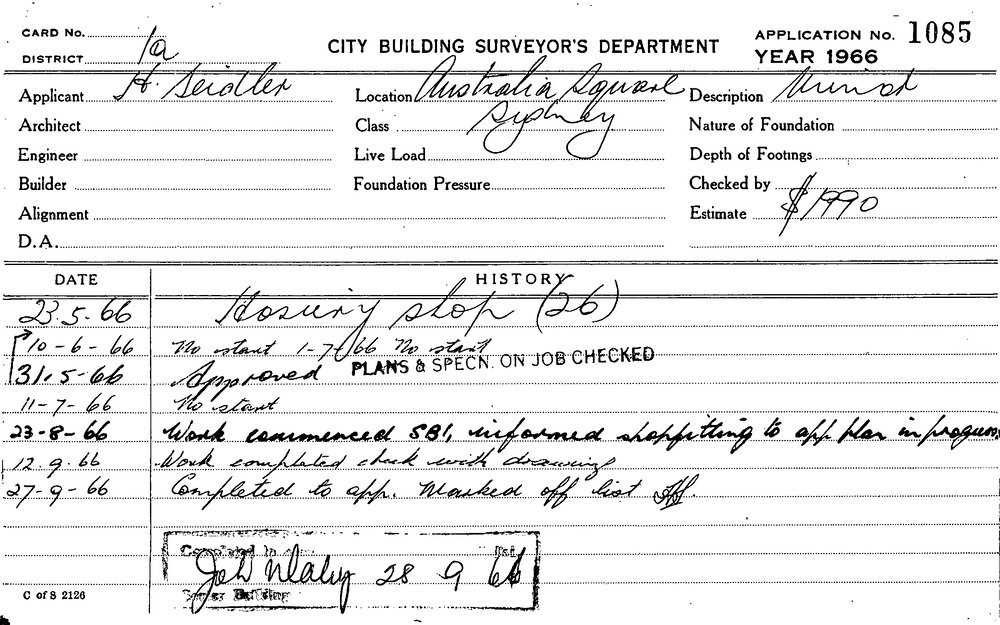 CARD No.
DISTRICT 1a
CITY BUILDING SURVEYOR'S DEPARTMENT
APPLICATION No. 1085
YEAR 1966
Applicant H. Seidler
Location Australia Square
Sydney
Description
Architect
Class
Nature of Foundation
Engineer
Live Load
Depth of Footings
Builder
Foundation Pressure
Checked by
Alignment
Estimate $1990
D.A.
DATE HISTORY
23.5.66 Hosiery shop (26)
10-6-66 No start 1-7-66 No start
PLANS & SPECN. ON JOB CHECKED
31.5-66 Approved
11-7-66 No start
23-8-66 Work commenced SBI, informed shopfitting to app plan in progress
12.9.66 Work completed check with drawings
27-9-66 Completed to app. Marked off list
Completed to
28 9 66
Building
C of S 2126